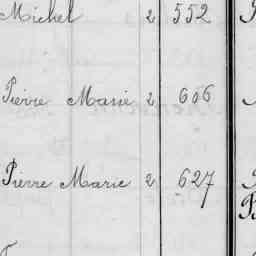 Michel 2 552
Pierre Marie 2 606
Pierre Marie 2 627